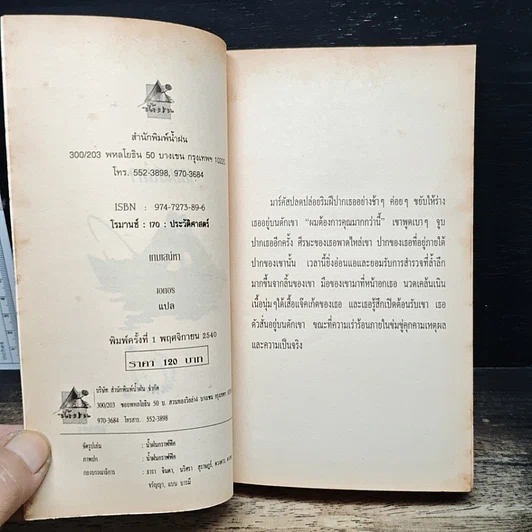 น้ำฝน
สำนักพิมพ์น้ำฝน
300/203 พหลโยธิน 50 บางเขน กรุงเทพฯ 10220
โทร. 552-3898, 970-3684
ISBN : 974-7273-89-6
โรมานซ์ : 170 : ประวัติศาสตร์
เกมเสน่หา
แปล
พิมพ์ครั้งที่ 1 พฤศจิกายน 2540
ราคา 120 บาท
น้ำฝน
บริษัท สำนักพิมพ์น้ำฝน จำกัด
300/203 ซอยพหลโยธิน 50 ถ. สวนทองวิลล่า บางเขน
970-3684 โทรสาร. 552-3898
จัดรูปเล่ม : น้ำฝนกราฟฟิค
ภาพปก : น้ำฝนกราฟฟิค
กองบรรณาธิการ : ธารา จินดา,
มาร์คัสปลดปล่อยริมฝีปากเธออย่างช้าๆ ค่อยๆ ขยับให้ร่าง
เธออยู่บนตักเขา "ผมต้องการคุณมากกว่านี้" เขาพูดเบาๆ จูบ
ปากเธออีกครั้ง ศีรษะของเธอพาดไหล่เขา ปากของเธอที่อยู่ภายใต้
ปากของเขานั้น เวลานี้ยิ่งอ่อนแอและยอมรับการสำรวจที่ล้ำลึก
มากขึ้นจากลิ้นของเขา มือของเขามาที่หน้าอกเธอ นวดเคล้นเนิน
เนื้อนุ่มๆ ใต้เสื้อแจ๊คเก็ตของเธอ และเธอรู้สึกเปิดต้อนรับเขา เธอ
ตัวสั่นอยู่บนตักเขา ขณะที่ความเร่าร้อนภายในข่มขู่คุกคามเหตุผล
และความเป็นจริง